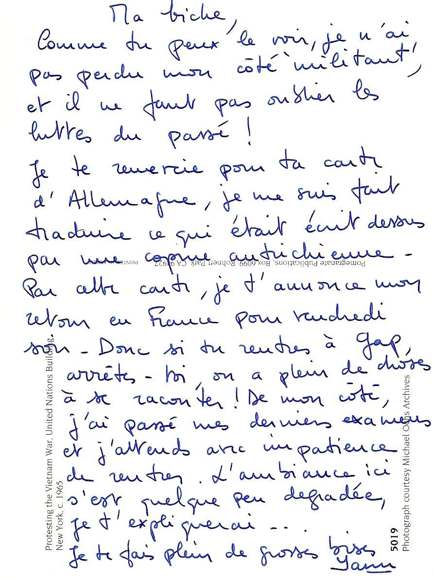 Ma biche,
Comme tu peux le voir, je n'ai
pas perdu mon côté "militant",
et il ne faut pas oublier les
luttes du passé !
Je te remercie pour ta carte
d'Allemagne, je me suis fait
traduire ce qui était écrit dessus
par une copine autrichienne -
Par cette carte, je t'annonce mon
retour en France pour vendredi
soir - Donc si tu rentres à Gap,
arrêtes-toi, on a plein de choses
à se raconter ! De mon côté,
j'ai passé mes derniers examens
et j'attends avec impatience
de rentrer. L'ambiance ici
s'est quelque peu degradée,
je t'expliquerai ...
Je te fais plein de grosses bises
Yann
Pomegranate Publications, Box 6099, Rohnert Park, CA 94927
Protesting the Vietnam War, United Nations Building,
New York, c. 1965
5019
Photograph courtesy Michael Ochs Archives